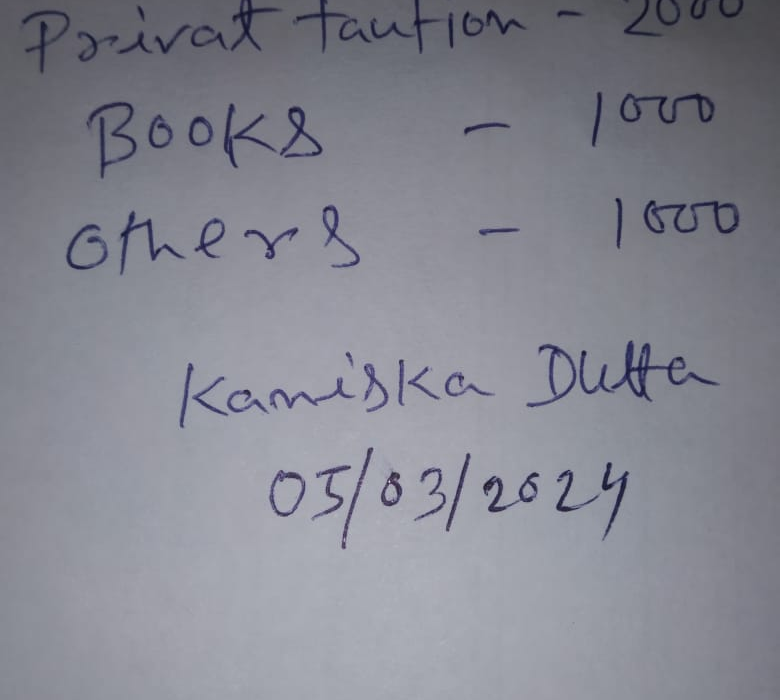 Privat taution - 2000
Books - 1000
Others - 1000
Kaniska Dutta
05/03/2024